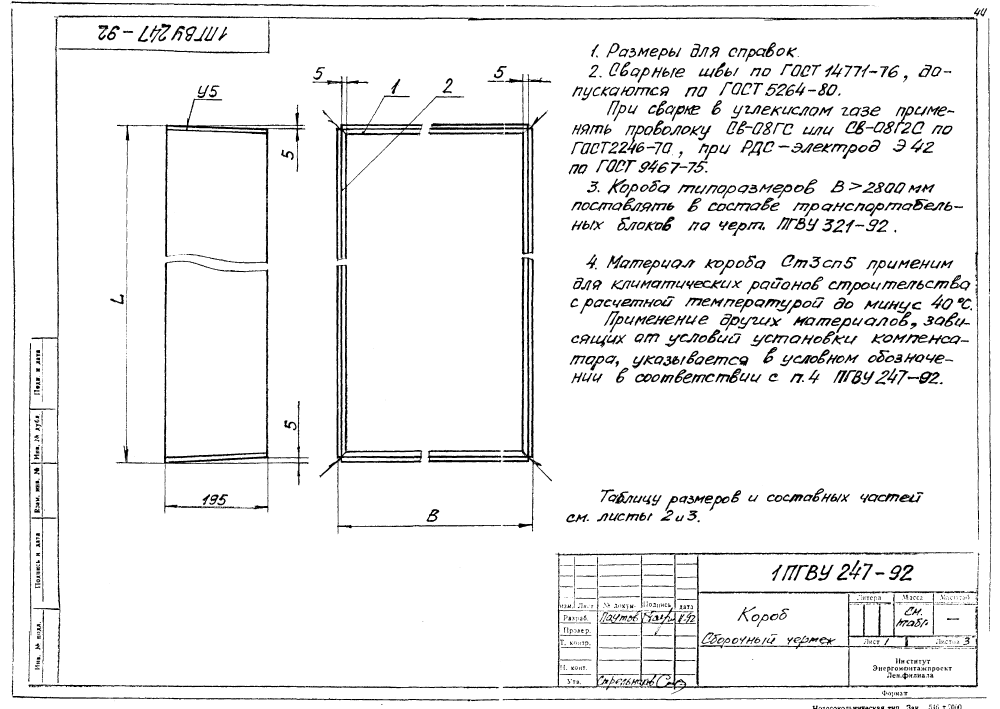 44
1ПГВУ 247-92
1. Размеры для справок
2. Сварные швы по ГОСТ 14771-76, до-
пускаются по ГОСТ 5264-80.
При сварке в углекислом газе приме-
нять проволоку Св-08ГС или Св-08Г2С по
ГОСТ2246-70, при РДС-электрод Э42
по ГОСТ 9467-75.
3. Короба типоразмеров В>2800 мм
поставлять в составе транспортабель-
ных блоков по черт. ПГВУ 321-92.
4. Материал короба Ст3сп5 применим
для климатических районов строительства
с расчетной температурой до минус 40°С.
Применение других материалов, зави-
сящих от условий установки компенса-
тора, указывается в условном обозначе-
нии в соответствии с п.4 ПГВУ 247-92.
У5
5
5
1
2
5
L
5
195
В
Таблицу размеров и составных частей
см. листы 2 и 3.
Подп. и дата
Инв. № дубл.
Взам. инв. №
Подпись и дата
Инв. № подл.
1ПГВУ 247-92
Изм. Лист № докум. Подпись дата
Разраб. Паутов
Провер.
Т. контр.
Н. конт.
Утв.
Короб
Сборочный чертеж
Литера Масса Масштаб
См. табл. —
Лист 1 Листов 3
Институт
Энергомонтажпроект
Лен.филиала
Формат